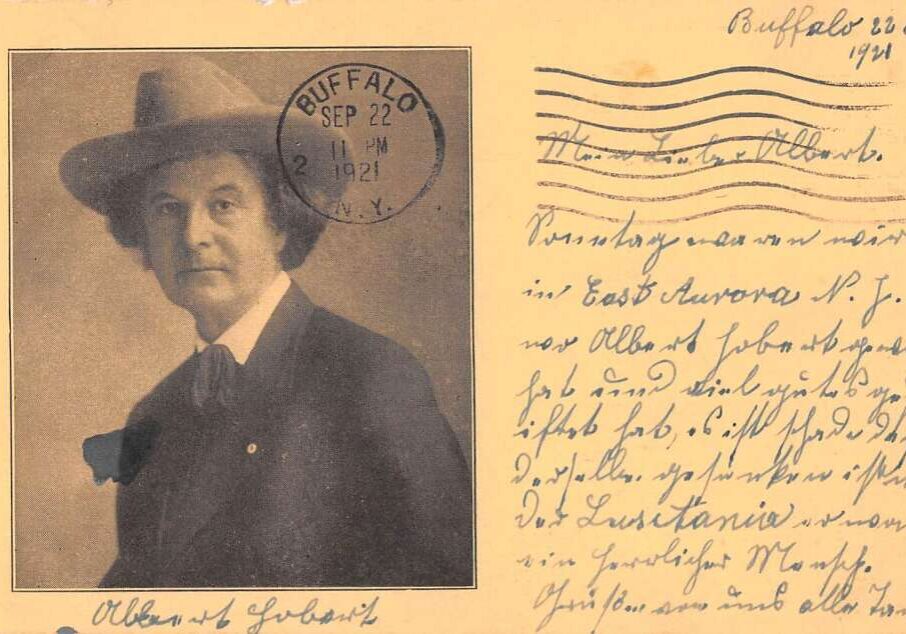 Buffalo 22
1921
BUFFALO
SEP 22
11 PM
2
1921
N.Y.
Mein Lieber Albert.
Sonntag waren wir
in East Aurora N. Y.
wo Albert Hobert gew
hat und viel gutes ge
iftet hat, es ist schade da
derselbe gesunken ist
der Lusitania er war
ein herrlicher Mensch.
Grüße von uns alle Ta
Albert Hobert